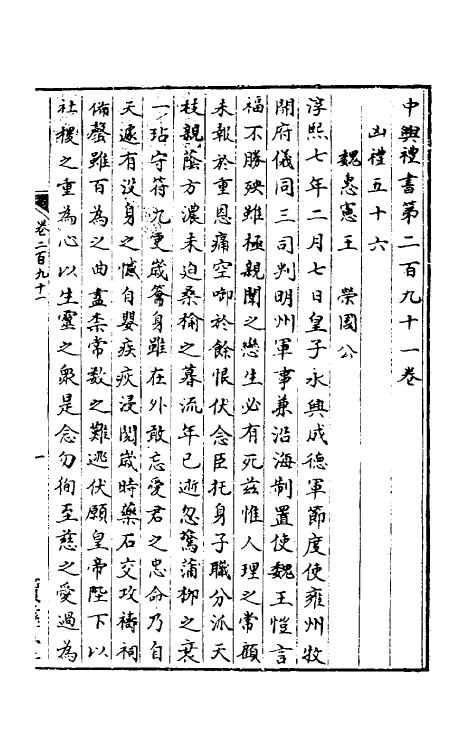 中興禮書第二百九十一卷
凶禮五十六
魏惠憲王　榮國公
淳熙七年二月七日皇子永興成德軍節度使雍州牧
開府儀同三司判明州軍事兼沿海制置使魏王愷言
福不勝殃雖極親闈之戀生必有死茲惟人理之常顧
未報於重恩痛空啣於餘恨伏念臣托身子職分派天
枝親蔭方濃未迫桑榆之暮流年已逝忽驚蒲柳之衰
一玷守符九更歲籥身雖在外敢忘愛君之忠命乃自
天遽有沒身之憾自嬰疾疢浸閱歲時藥石交攻禱祠
備罄雖百為之曲盡柰常数之難逃伏願皇帝陛下以
社稷之重為心以生靈之衆是念勿徇至慈之愛過為
卷二百九十一
一